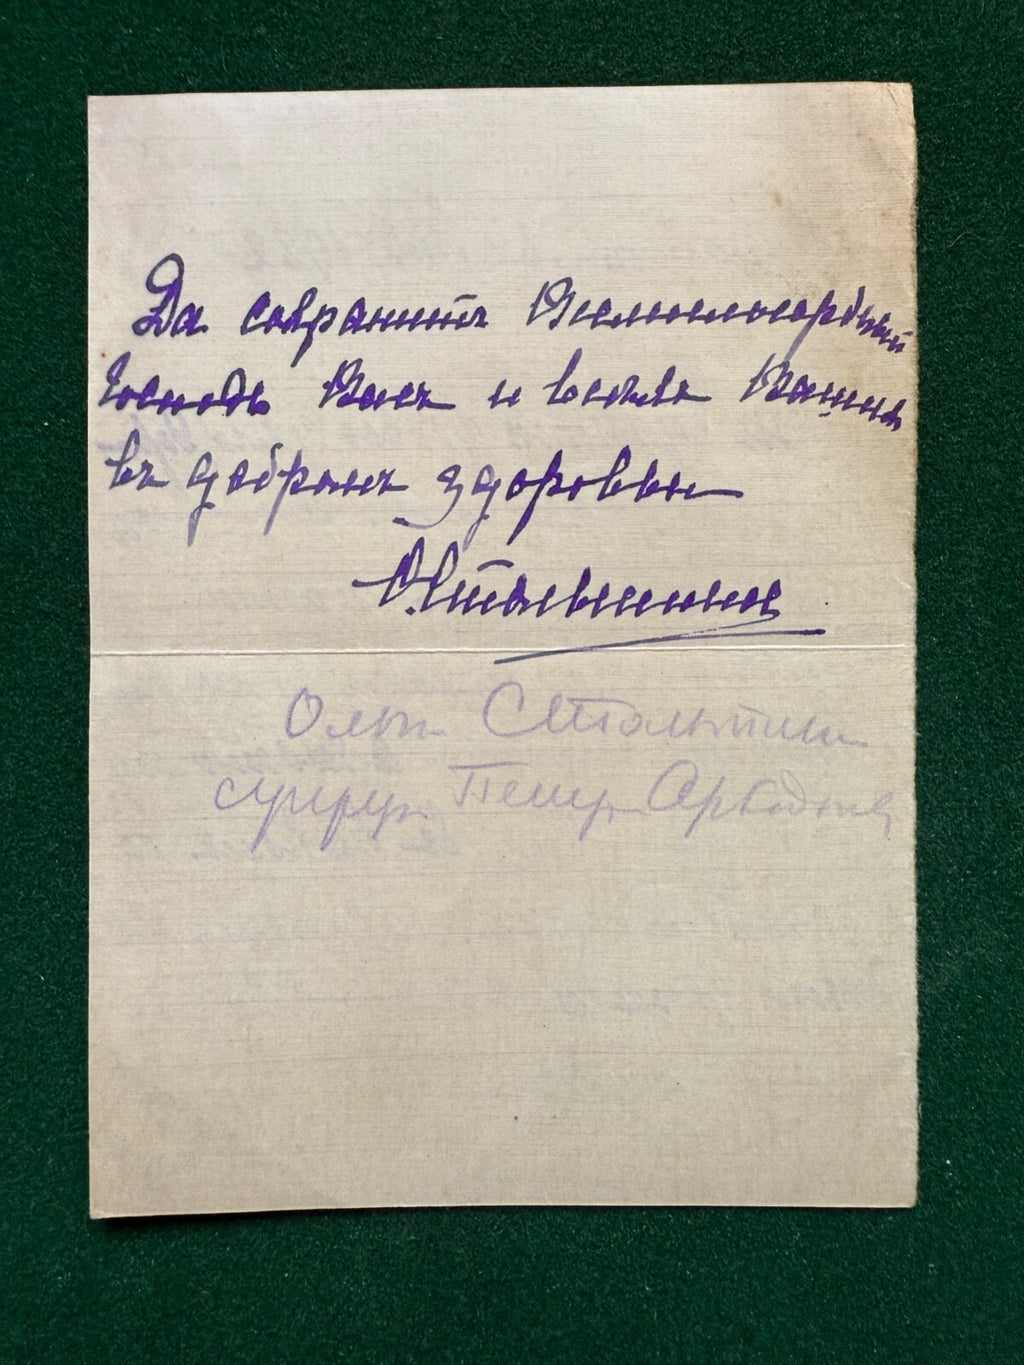 Да сохранитъ Всемилосердный
Господь Васъ и всѣхъ Вашихъ
въ добромъ здоровьи
О. Столыпина
Ольга Столыпина
супруга Петра Аркадиев